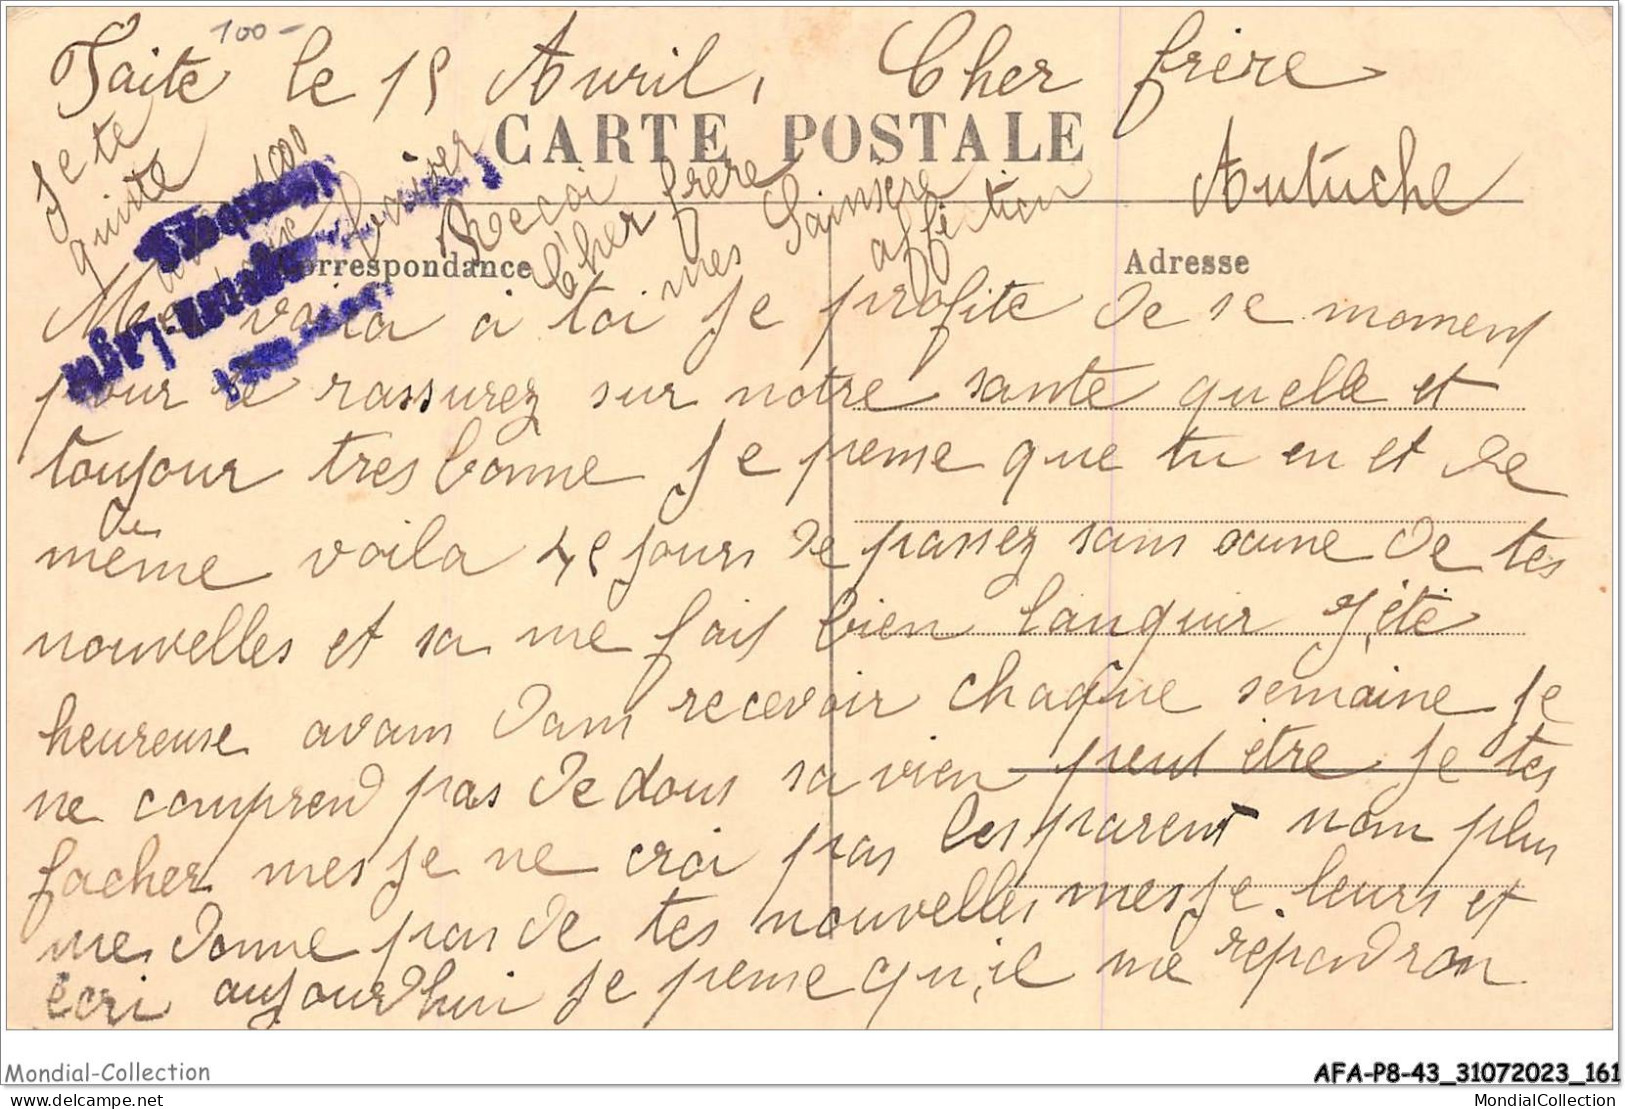 100-
Faite le 15 Avril, Cher frère
Autuche
CARTE POSTALE
Correspondance
Adresse
Me voila a toi je profite de se moment
pour te rassurez sur notre sante quelle et
toujour tres bonne je pense que tu en et de
de
même voila 45 jours de passez sans aucune de tes
nouvelles et sa me fait bien languir j'été
heureuse avam dans recevoir chaque semaine je
ne comprend pas de dous sa vien peut être je tes
facher mes je ne croi pas les parent nom plus
me donne pas de tes nouvelles mes je leurs et
écri aujourdhui je pense qu,il me répondron
je te
quitte
1000
baiser
Recoi
Cher frère
mes Sainsère
affection
Mondial-Collection
AFA-P8-43_31072023_161
delcampe.net
MondialCollection